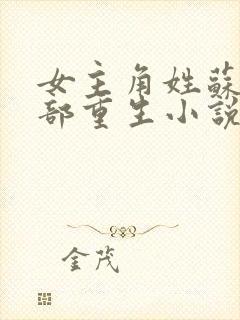 女主角姓蘇
部重生小說
金茂